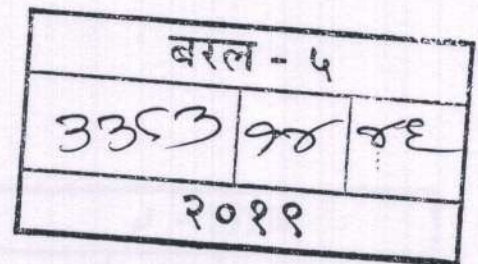 बरल - ५
३३८३ १४ ४६
२०१९